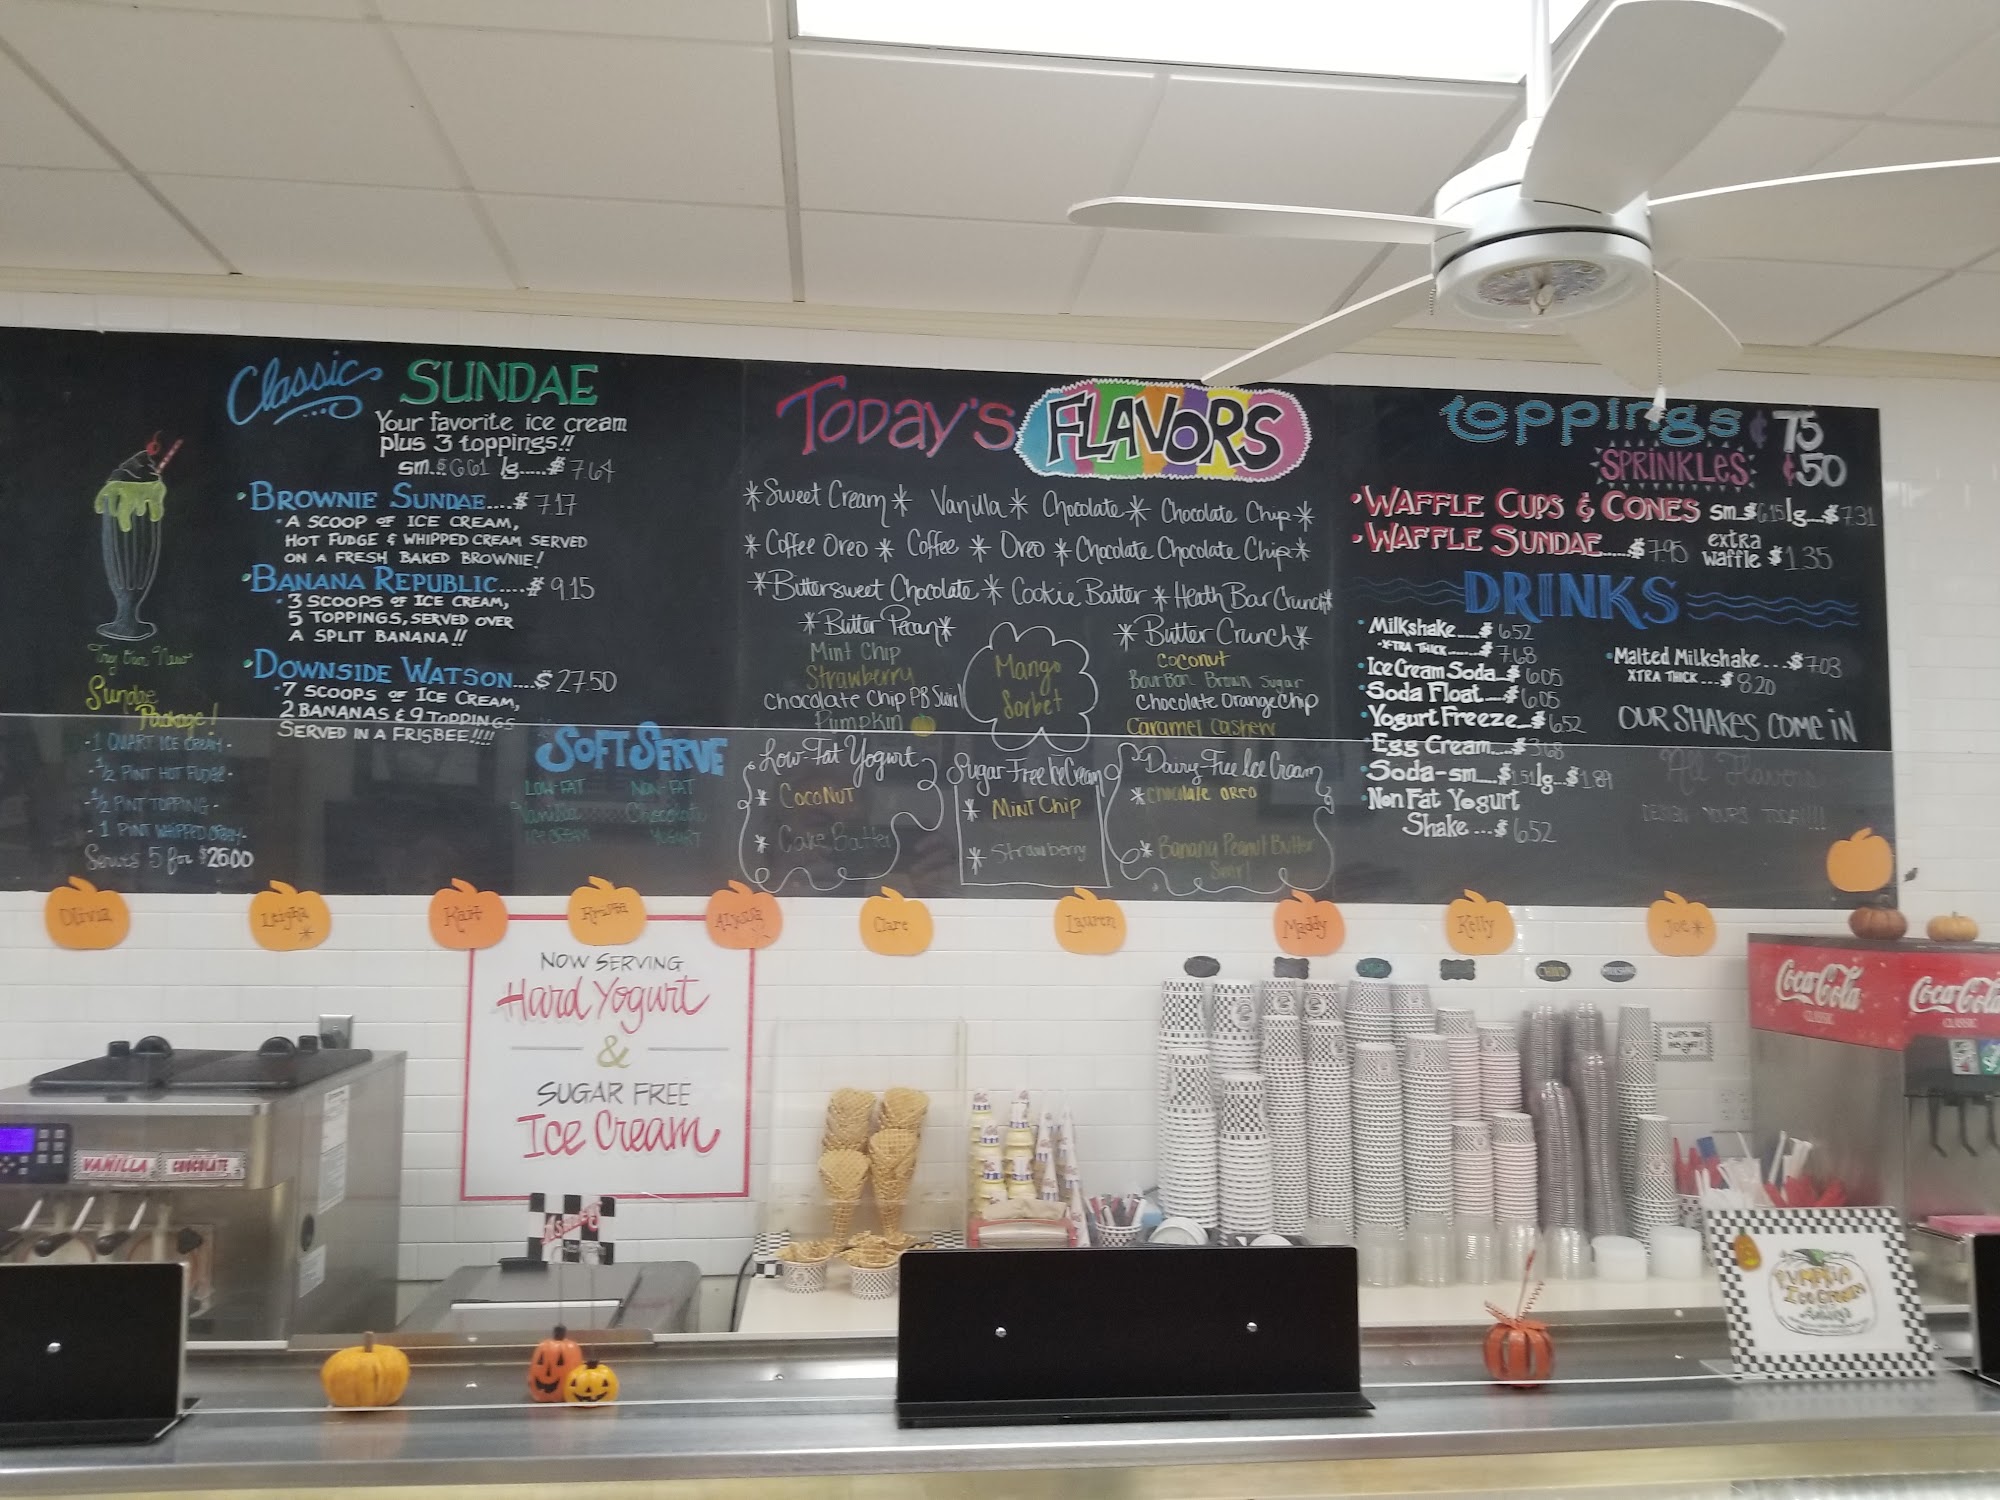 Classic SUNDAE
Your favorite ice cream
plus 3 toppings!!
sm..$6.61 lg.....$7.64
• BROWNIE SUNDAE....$ 7.17
• A SCOOP OF ICE CREAM,
HOT FUDGE & WHIPPED CREAM SERVED
ON A FRESH BAKED BROWNIE!
• BANANA REPUBLIC....$ 9.15
• 3 SCOOPS OF ICE CREAM,
5 TOPPINGS, SERVED OVER
A SPLIT BANANA!!
• DOWNSIDE WATSON....$ 27.50
• 7 SCOOPS OF ICE CREAM,
2 BANANAS & 9 TOPPINGS
SERVED IN A FRISBEE!!!!
Try Our New
Sundae
Package!
- 1 QUART ICE CREAM -
- 1/2 PINT HOT FUDGE -
- 1/2 PINT TOPPING -
- 1 PINT WHIPPED CREAM -
Serves 5 for $26.00
SOFT SERVE
LOW-FAT NON-FAT
Vanilla Chocolate
ICE CREAM YOGURT
TODAY'S FLAVORS
* Sweet Cream * Vanilla * Chocolate * Chocolate Chip *
* Coffee Oreo * Coffee * Oreo * Chocolate Chocolate Chip *
* Bittersweet Chocolate * Cookie Batter * Heath Bar Crunch *
* Butter Pecan * * Butter Crunch *
Mint Chip
Strawberry
Chocolate Chip PB Swirl
Pumpkin
Mango
Sorbet
Coconut
Bourbon Brown Sugar
Chocolate Orange Chip
Caramel Cashew
Low-Fat Yogurt
* Coconut
* Cake Batter
Sugar Free Ice Cream
* Mint Chip
* Strawberry
Dairy Free Ice Cream
* chocolate oreo
* Banana Peanut Butter
Swirl
toppings ¢ 75
SPRINKLES ¢ 50
• WAFFLE CUPS & CONES sm..$6.15 lg...$7.31
• WAFFLE SUNDAE.....$7.95 extra
waffle $1.35
DRINKS
• Milkshake.....$ 6.52
• XTRA THICK.........$ 7.68
• Ice Cream Soda...$ 6.05
• Soda Float....$ 6.05
• Yogurt Freeze..$ 6.52
• Egg Cream....$ 3.68
• Soda-sm....$1.51 lg...$1.89
• Non Fat Yogurt
Shake...$ 6.52
• Malted Milkshake...$7.03
XTRA THICK...$ 8.20
OUR SHAKES COME IN
All Flavors
DESIGN YOURS TODAY!!!!
Olivia
Leigha *
Kait
Krista
Alyssa
Clare
Lauren
Maddy
Kelly
Joe *
NOW SERVING
Hard Yogurt
&
SUGAR FREE
Ice Cream
VANILLA
CHOCOLATE
CHILD
Coca-Cola
CLASSIC
Coca-Cola
CLASSIC
PUMPKIN
Ice Cream